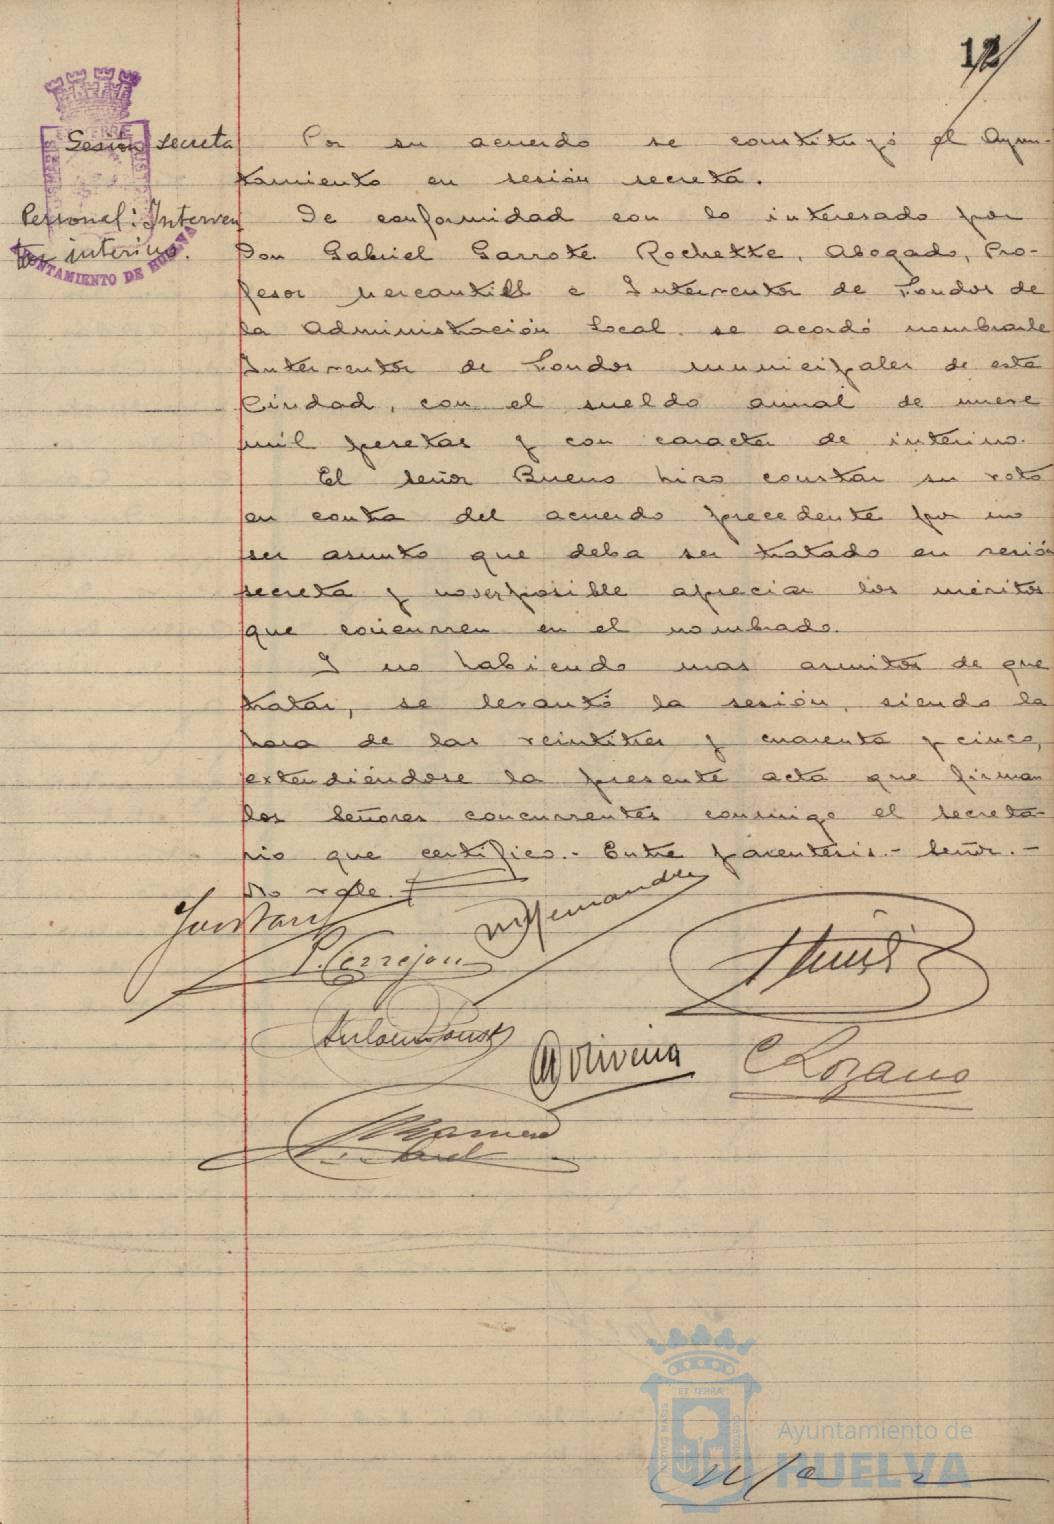 12
Sesión secreta
Por su acuerdo se constituyó el Ayun-
tamiento en sesión secreta.
Personal: Interven
tor interino.
De conformidad con lo interesado por
Don Gabriel Garrote Rochette, Abogado, Pro-
fesor Mercantil e Interventor de Fondos de
la Administración Local se acordó nombrarle
Interventor de Fondos municipales de esta
Ciudad, con el sueldo anual de nueve
mil pesetas y con caracter de interino.
El Señor Bueno hizo constar su voto
en contra del acuerdo precedente por no
ser asunto que deba ser tratado en sesión
secreta y no ser posible apreciar los méritos
que concurren en el nombrado.
Y no habiendo mas asuntos de que
tratar, se levantó la sesión, siendo la
hora de las veintitres y cuarenta y cinco,
extendiéndose la presente acta que firman
los Señores concurrentes conmigo el Secreta-
rio que certifico.- Entre parentesis.- Señor.-
No vale.
AYUNTAMIENTO DE HUELVA
P. Cerrejon
M Hernandez
Oliveira
C Lozano
PORTUS MARIS
ET TERRE
CUSTODIA
Ayuntamiento de
HUELVA